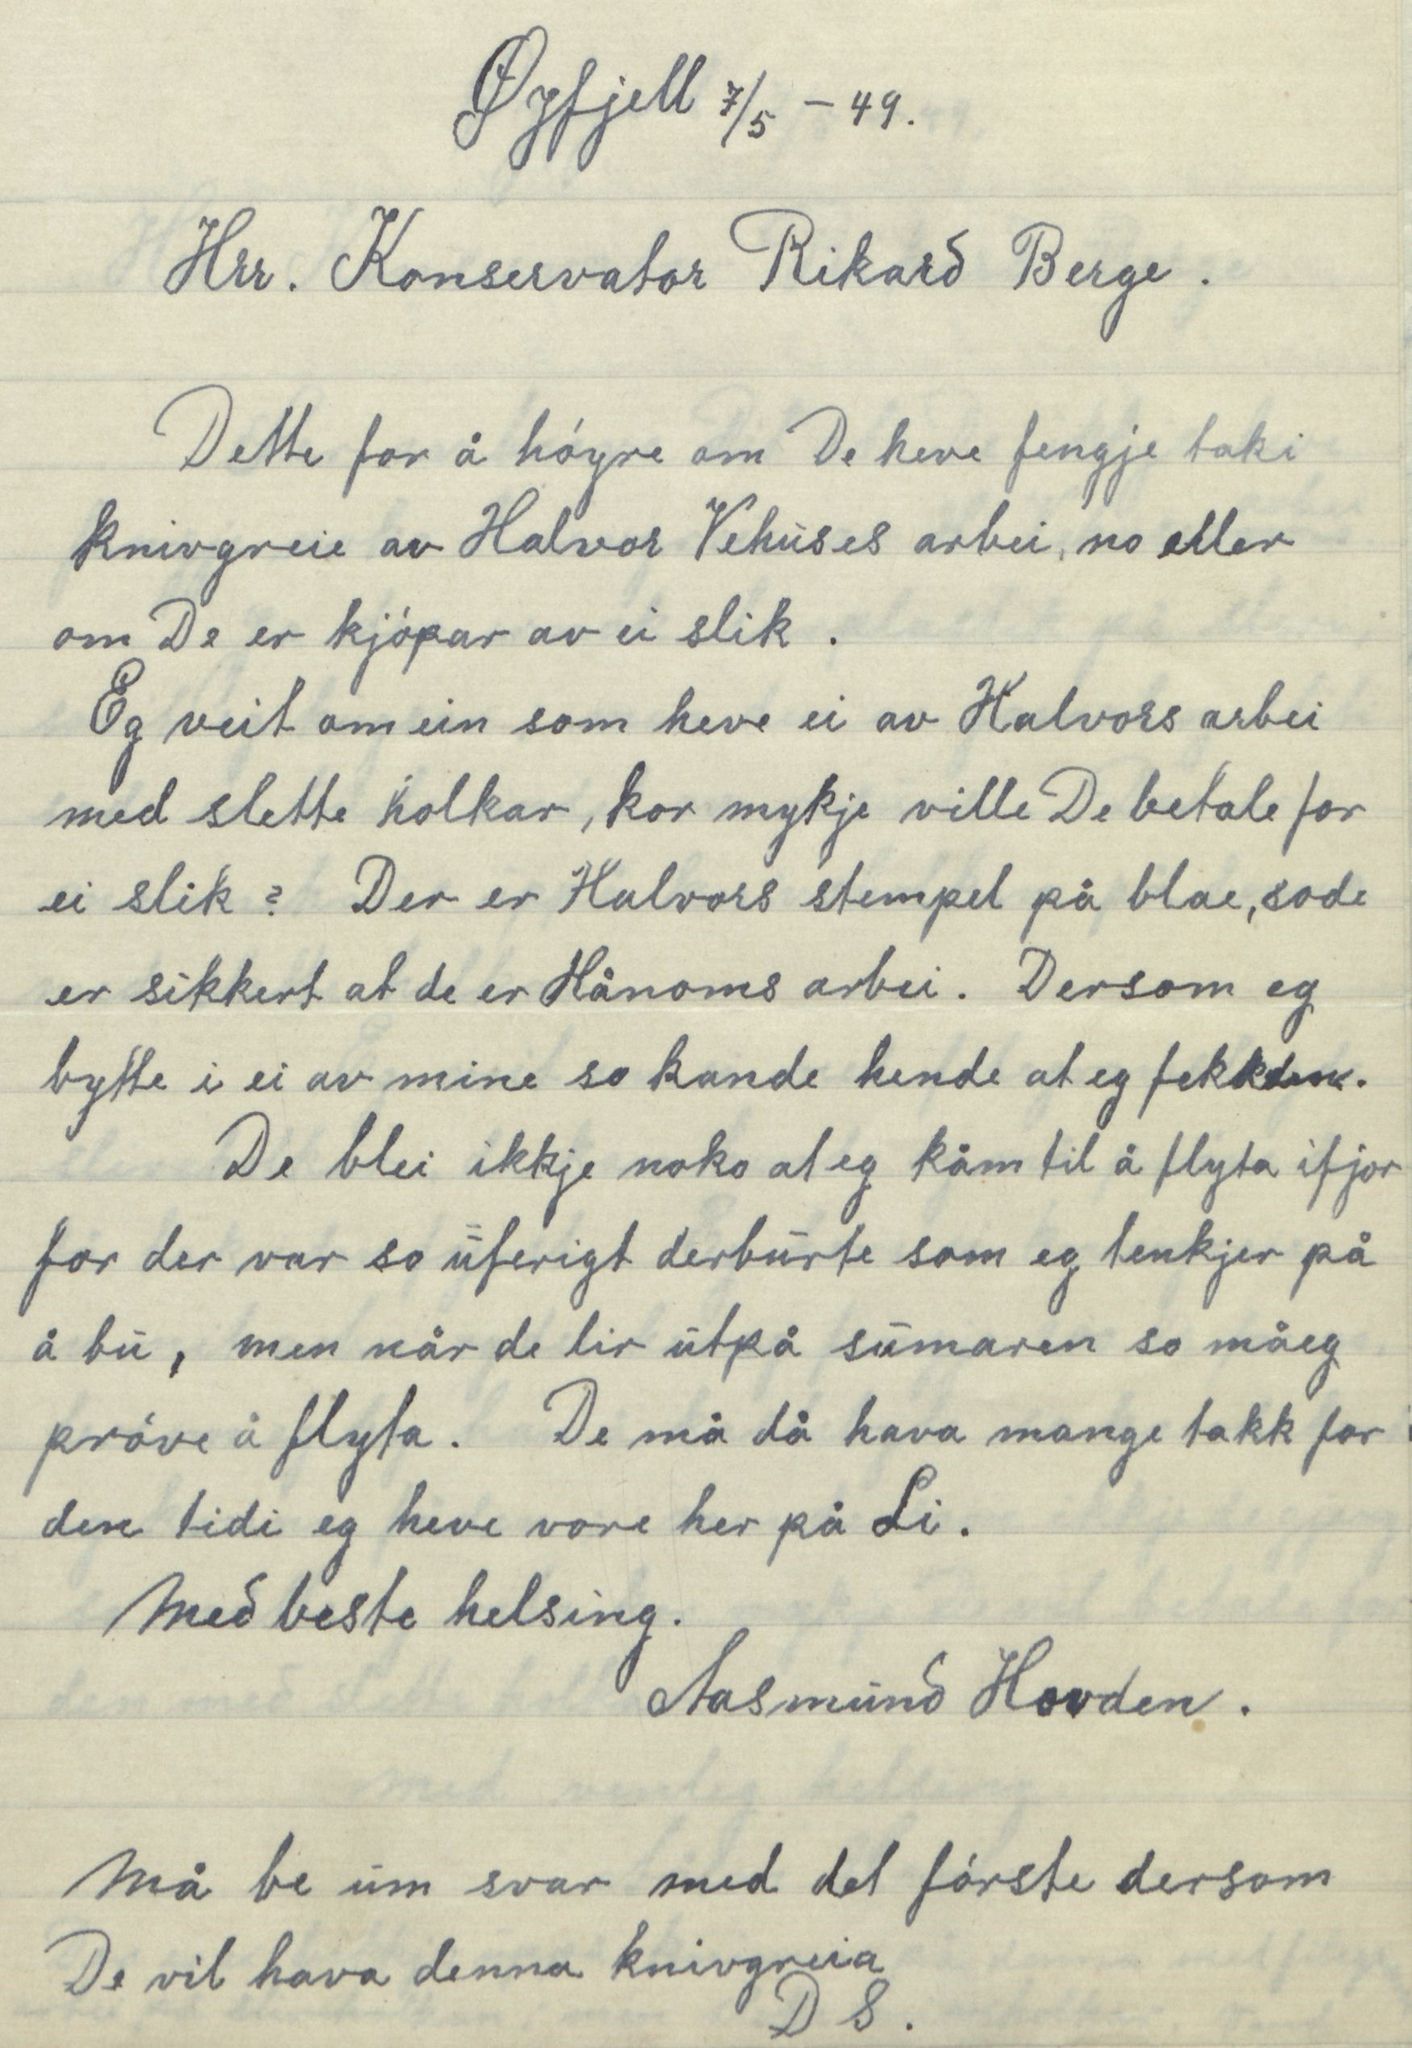 Øyfjell 7/5 - 49.
Hrr. Konservator Rikard Berge.
Dette for å höyre om De heve fengje taki
knivgreie av Halvor Vehuses arbei, no eller
om De er kjöpar av ei slik.
Eg veit om ein som heve ei av Halvors arbei
med slette holkar, kor mykje ville De betale for
ei slik? Der er Halvors stempel på blae, so de
er sikkert at de er Hånoms arbei. Dersom eg
bytte i ei av mine so kan de hende at eg fekk den.
De blei ikkje noko at eg kåm til å flyta ifjor
for der var so uferigt derburte som eg tenkjer på
å bu, men når de lir utpå sumaren so må eg
pröve å flyta. De må då hava mange takk for
den tidi eg heve vore her på Li.
Med beste helsing.
Aasmund Hovden.
Må be um svar med det förste dersom
De vil hava denna knivgreia
D S.